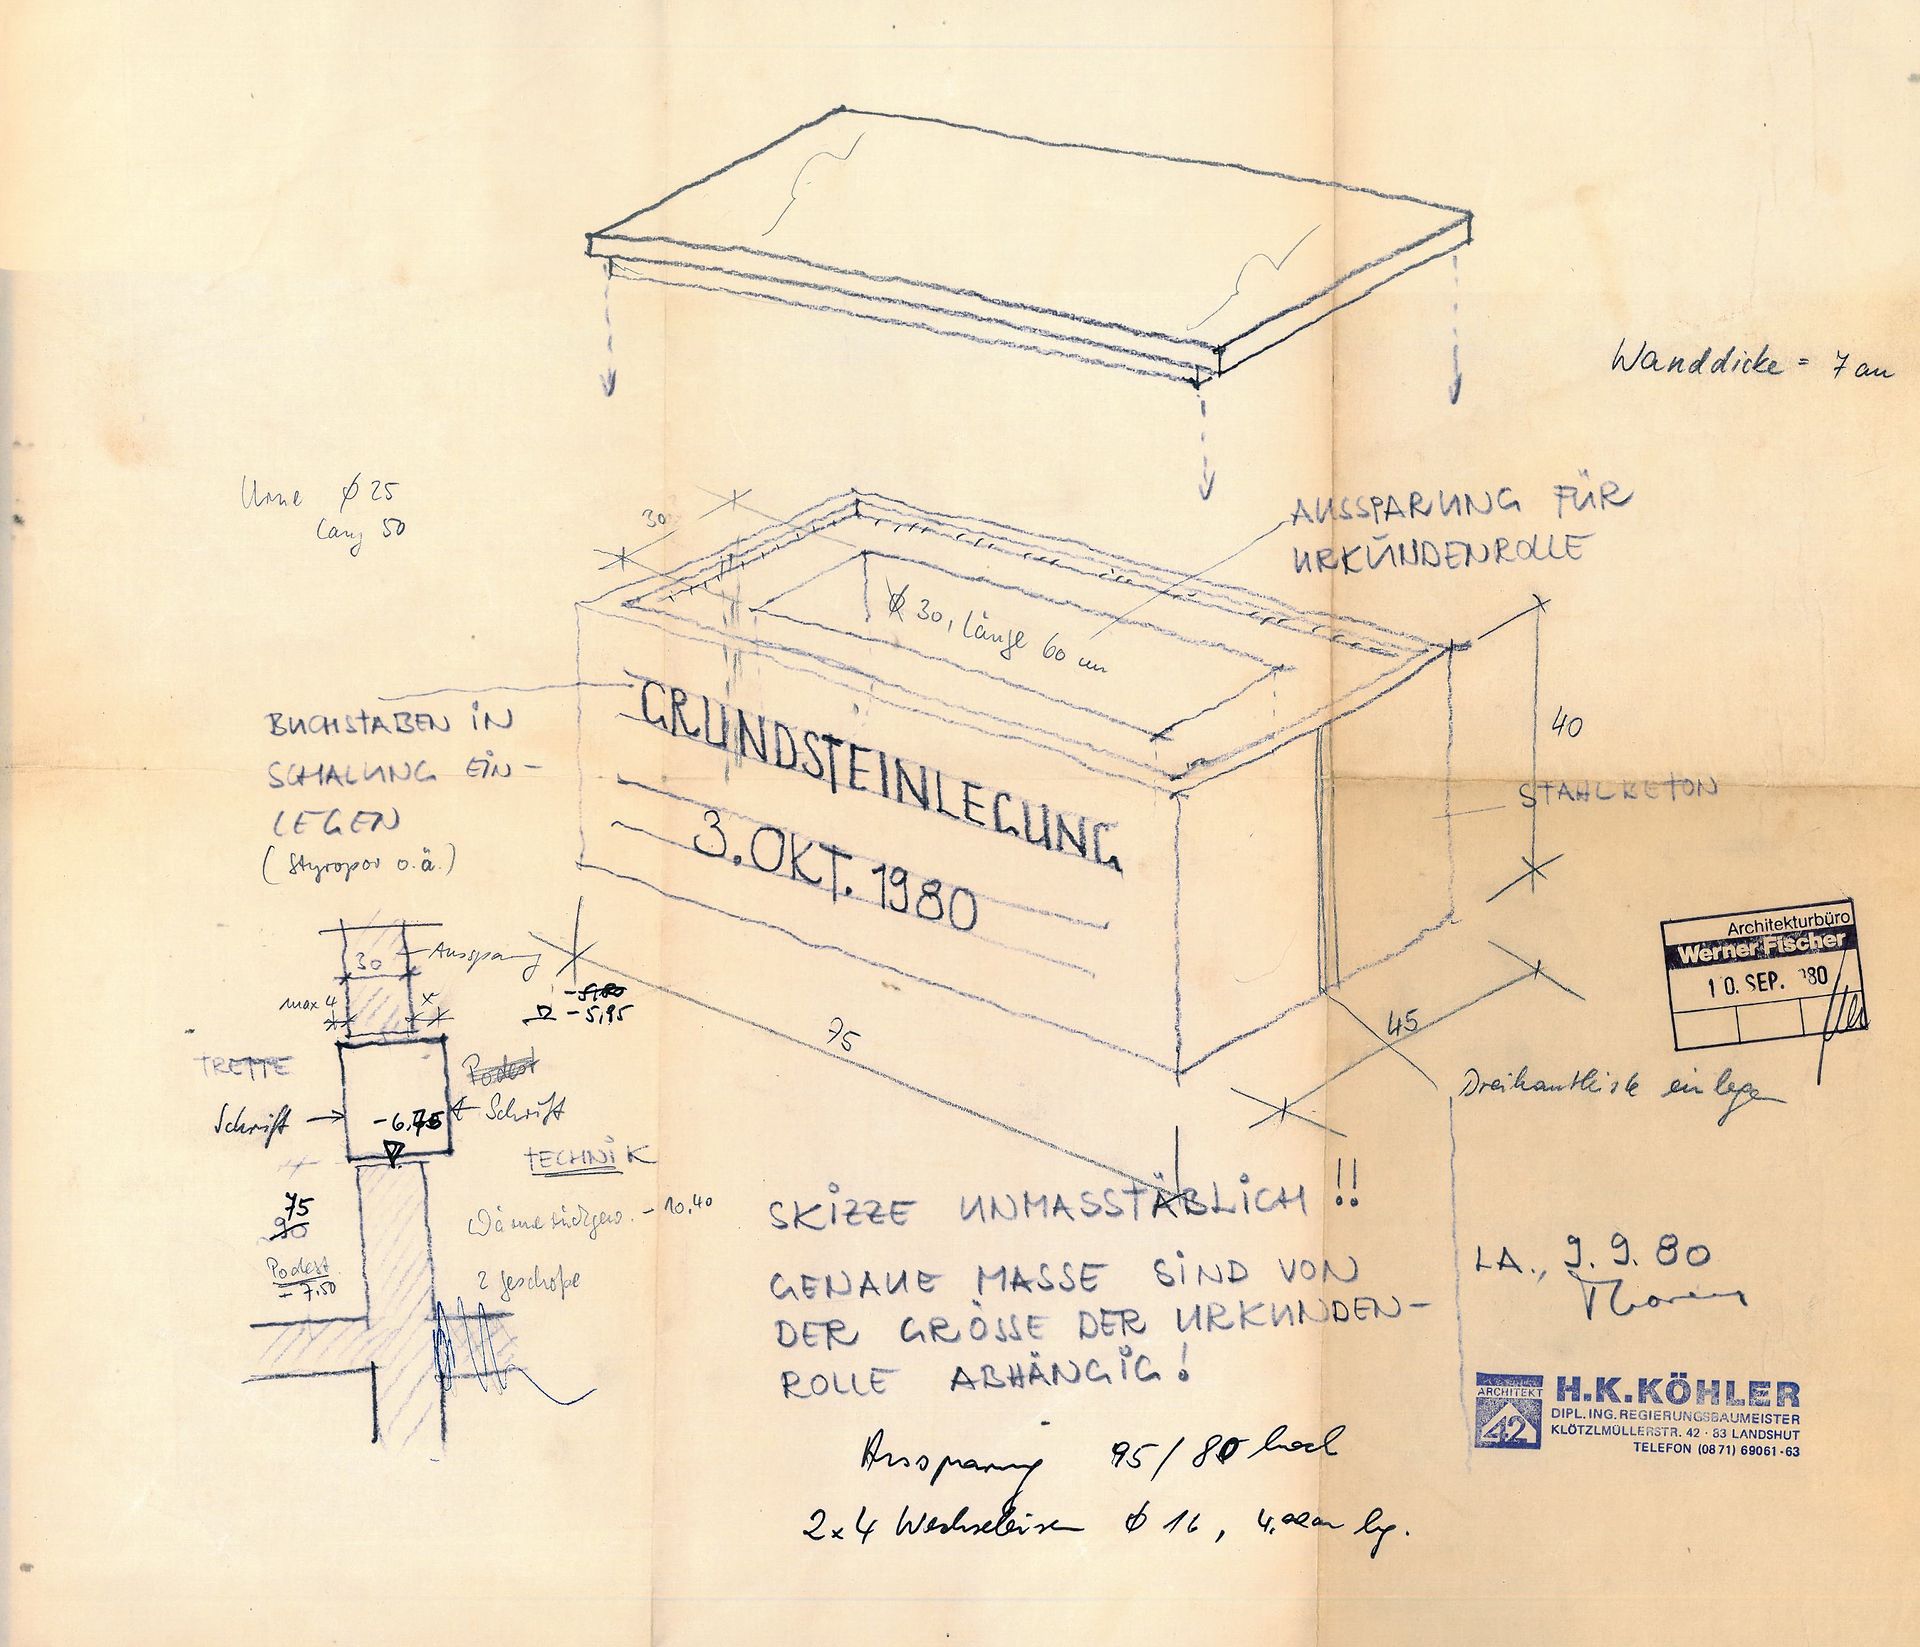 Wanddicke = 7 cm
Urne ∅ 25
lang 50
30
AUSSPARUNG FÜR
URKUNDENROLLE
∅ 30, Länge 60 cm
BUCHSTABEN IN
SCHALUNG EIN-
LEGEN
(Styropor o.ä.)
GRUNDSTEINLEGUNG
3. OKT. 1980
40
STAHLBETON
75
45
Dreikantleiste einlegen
30
Aussparung
max 4
x
-5,80
-5,95
TREPPE
Podest
Schrift
-6,75
Schrift
TECHNIK
75
90
Podest
-7.50
Wärmerückgew. -10.40
2 Geschoße
SKIZZE UNMASSTÄBLICH !!
GENAUE MASSE SIND VON
DER GRÖSSE DER URKUNDEN-
ROLLE ABHÄNGIG!
Aussparung 95/80 hoch
2x4 Wechseleisen ∅ 16, 4.00m lg.
Architekturbüro
Werner Fischer
10. SEP. 80
LA., 9. 9. 80
ARCHITEKT
42
H.K.KÖHLER
DIPL. ING. REGIERUNGSBAUMEISTER
KLÖTZLMÜLLERSTR. 42 · 83 LANDSHUT
TELEFON (0871) 69061-63